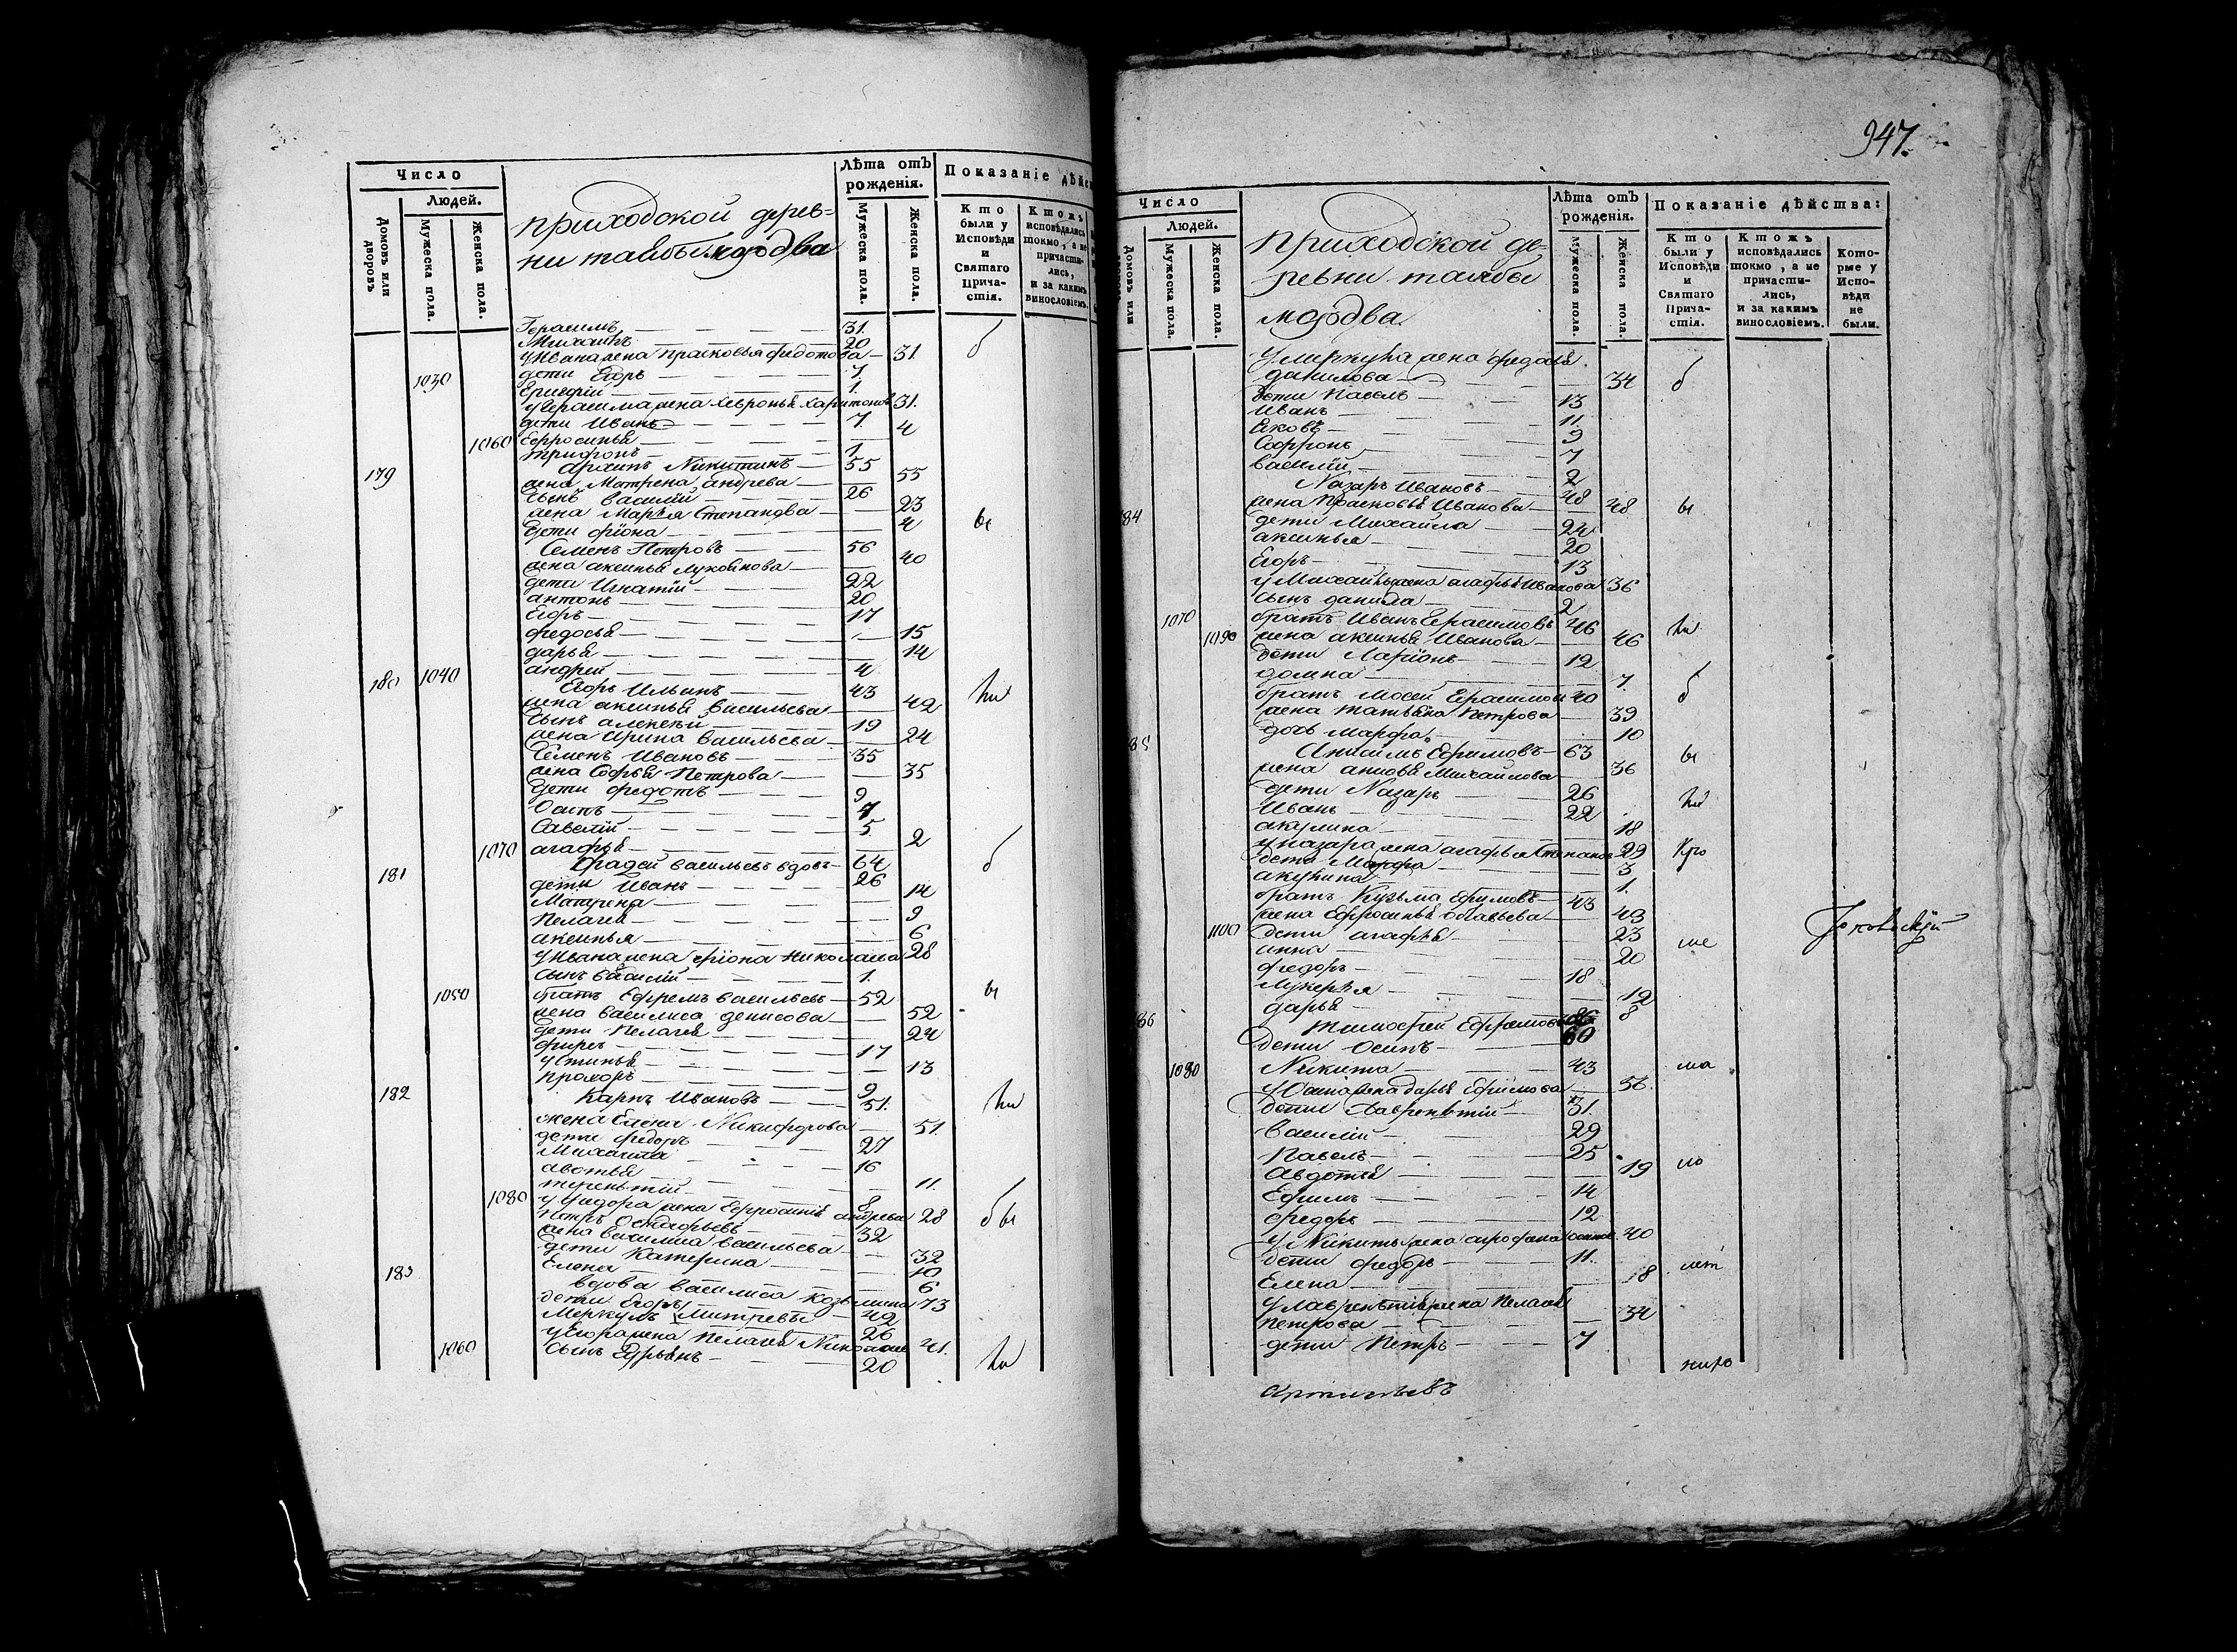 Число
Людей.
Домовъ или дворовъ
Мужеска пола.
Женска пола.
приходской дерев-
ни таибы мордва
Лѣта отъ рожденія.
Мужеска пола.
Женска пола.
Показаніе дѣйс
Кто были у Исповѣди и Святаго Причастія.
Ктожъ исповѣдались токмо, а не причастились, и за какимъ винословіемъ.
Герасимъ 31.
Михаилъ 20
у Ивана жена прасковья федотова 31. б
дети Егоръ 7
1030
1
у Герасима жена хевронья харитонова 31.
дети Иванъ 7
1060 Ефросинья 4
трифонъ 1
179 архипъ Никитинъ 55
жена Матрена андрева 55
сынъ василій 26
жена Марья Степанова 23
дети фіона 4 бы
Семенъ Петровъ 56
жена аксинья Лукоянова 40
дети Игнатій 22
антонъ 20
Егоръ 17
федосья 15
дарья 14
1040 андрей 4
180 Егоръ Ильинъ 43
жена аксинья васильева 42
сынъ алексѣй 19
жена Ирина васильева 24
Семенъ Ивановъ 35
жена Софья Петрова 35
дети федотъ 9
Осипъ 7
Савелій 5
1070 агафья 2 б
181 фадей васильевъ вдовъ 64
дети Иванъ 26
Матрена 14
Пелагея 9
аксинья 6
у Ивана жена фіона Николаева 28
сынъ василій 1
1050 братъ Ефремъ васильевъ 52 вы
жена василиса денисова 52
дети Пелагея 24
фирсъ 17
устинья 13
прохоръ 9
182 Карпъ Ивановъ 51.
жена Елена Никифорова 51.
дети федоръ 27
Михаила 16
авотья 11.
терентій 8
1080 у федора жена Ефросинья андрева 28
Петръ Остафьевъ 32
жена василиса васильева 32
дети Катерина 10
Елена 6
183 вдова василиса козьмина 73
дети Егоръ 42
Меркулъ Митревы 26
у Егора жена Пелагея Николаева 41.
1060 сынъ Емельянъ 20
947.
Число
Людей.
Домовъ или
Мужеска пола.
Женска пола.
приходской де-
ревни таибы
мордва.
Лѣта отъ рожденія.
Мужеска пола.
Женска пола.
Показаніе дѣйства:
Кто были у Исповѣди и Святаго Причастія.
Ктожъ исповѣдались токмо, а не причастились, и за какимъ винословіемъ.
Которые у Исповѣди не были.
у меркула жена федосья
данилова 34 б
дети Павелъ 13
Иванъ 11
Яковъ 9
Софронъ 7
василій 2
84 Назаръ Ивановъ 48
жена Прасковья Иванова 48 вы
дети Михаила 24
аксинья 20
Егоръ 13
у Михаилы жена агафья Иванова 36
сынъ данила 2
1070 братъ Иванъ Герасимовъ 46
1090 жена аксинья Иванова 46
дети Ларіонъ 12
домна 7.
братъ Мосей Герасимовъ 40 б
жена татьяна Петрова 39
дочь Марфа 10
85 Анисимъ Ефимовъ 63 вы
жена Михаилова 36
дети Назаръ 26
Иванъ 22
акулина 18
у назара жена агафья Степанова 29 Кро
дети Марфа 3
акулина 1.
братъ Кузьма Ефимовъ 43
жена Ефросинья 43
1100 дети агафья 23
анна 20 ме
федоръ 18
Лукерья 12
дарья 8
86 тимофей Ефимовъ
дети Осипъ 60
1080 Никита 43 ма
у Осипа жена дарья Ефимова 56.
дети Лаврентій 31.
василій 29
Павелъ 25
Авдотья 19 ло
Ефимъ 14
федоръ 12
у Никиты жена агрофена 40
дети федоръ 11. лет
Елена 18
у лаврентія жена Пелагея
Петрова 34
дети Петръ 7